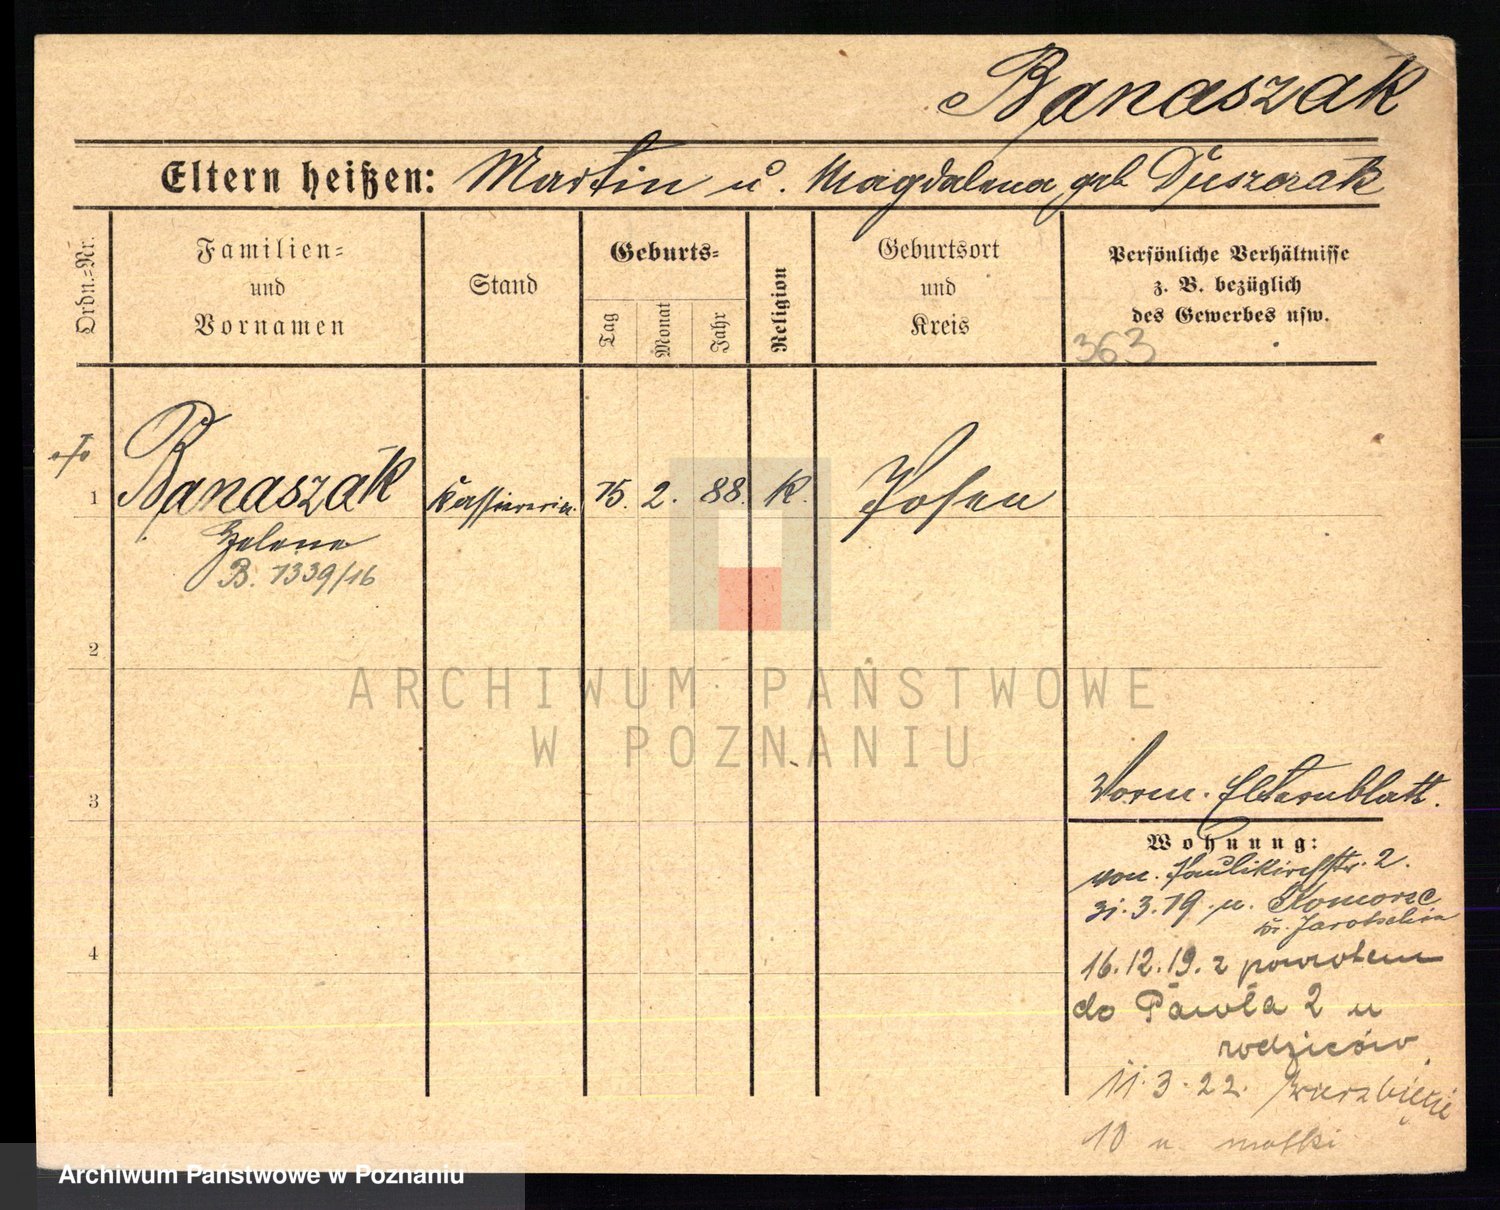 Banaszak
Eltern heißen: Martin u. Magdalena geb Duszczak
Ordn.-Nr.
Familien-
und
Vornamen
Stand
Geburts-
Tag
Monat
Jahr
Religion
Geburtsort
und
Kreis
Persönliche Verhältnisse
z. B. bezüglich
des Gewerbes usw.
363
1 Banaszak Kassiererin 15. 2. 88. K. Posen
Helene
B. 1339/16
2
ARCHIWUM PAŃSTWOWE
W POZNANIU
3
Vorm. Elternblatt.
Wohnung:
von. Paulikirchstr. 2.
31.3.19. n. Komorze
Kr. Jarotschin
4
16.12.19. z powrotem
do Pawła 2 u
rodziców
11.3.22. Wierzbięcie
10 u matki
Archiwum Państwowe w Poznaniu